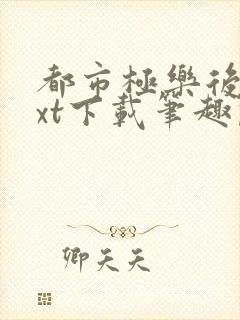 都市極樂後
xt下載筆趣
卿天天